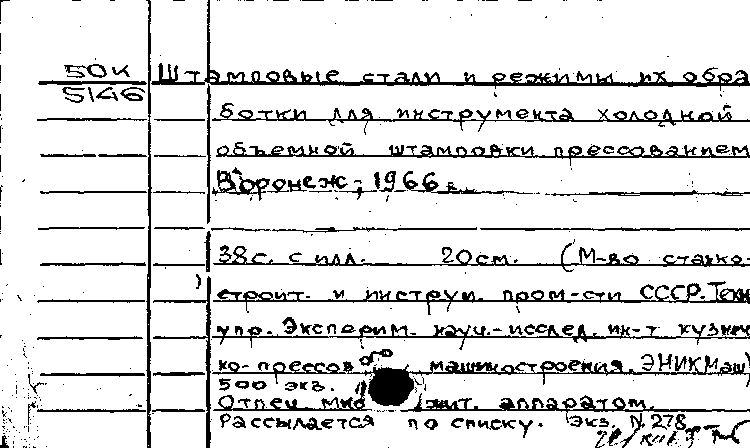 50к Штамповые стали и режимы их обра
5146
ботки для инструмента холодной
объемной штамповки прессованием
Воронеж, 1966 г.
38с. с илл. 20см. (М-во станко-
строит. и инструм. пром-сти СССР. Техн
упр. Эксперим. науч.-исслед. ин-т кузнеч
ко-прессов машиностроения. ЭНИКМаш)
500 экз.
Отпеч. аппаратом.
Рассылается по списку. Экз. N 278